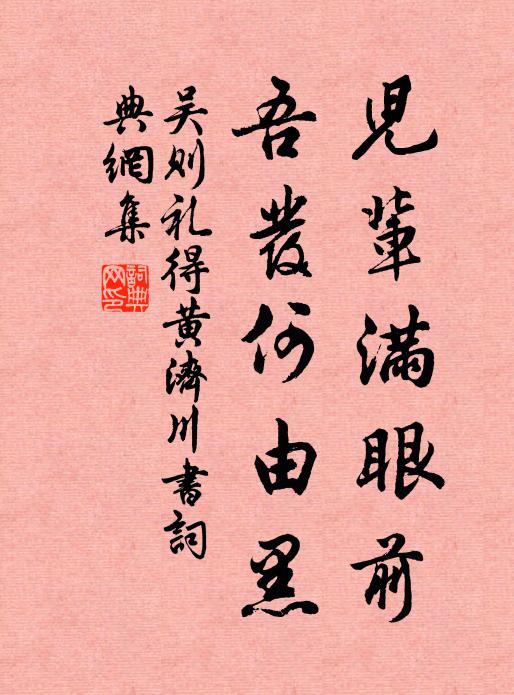 兒輩滿眼前
吾發何由黑
吳則礼得黃濟川書詞
典網集
詞典網印